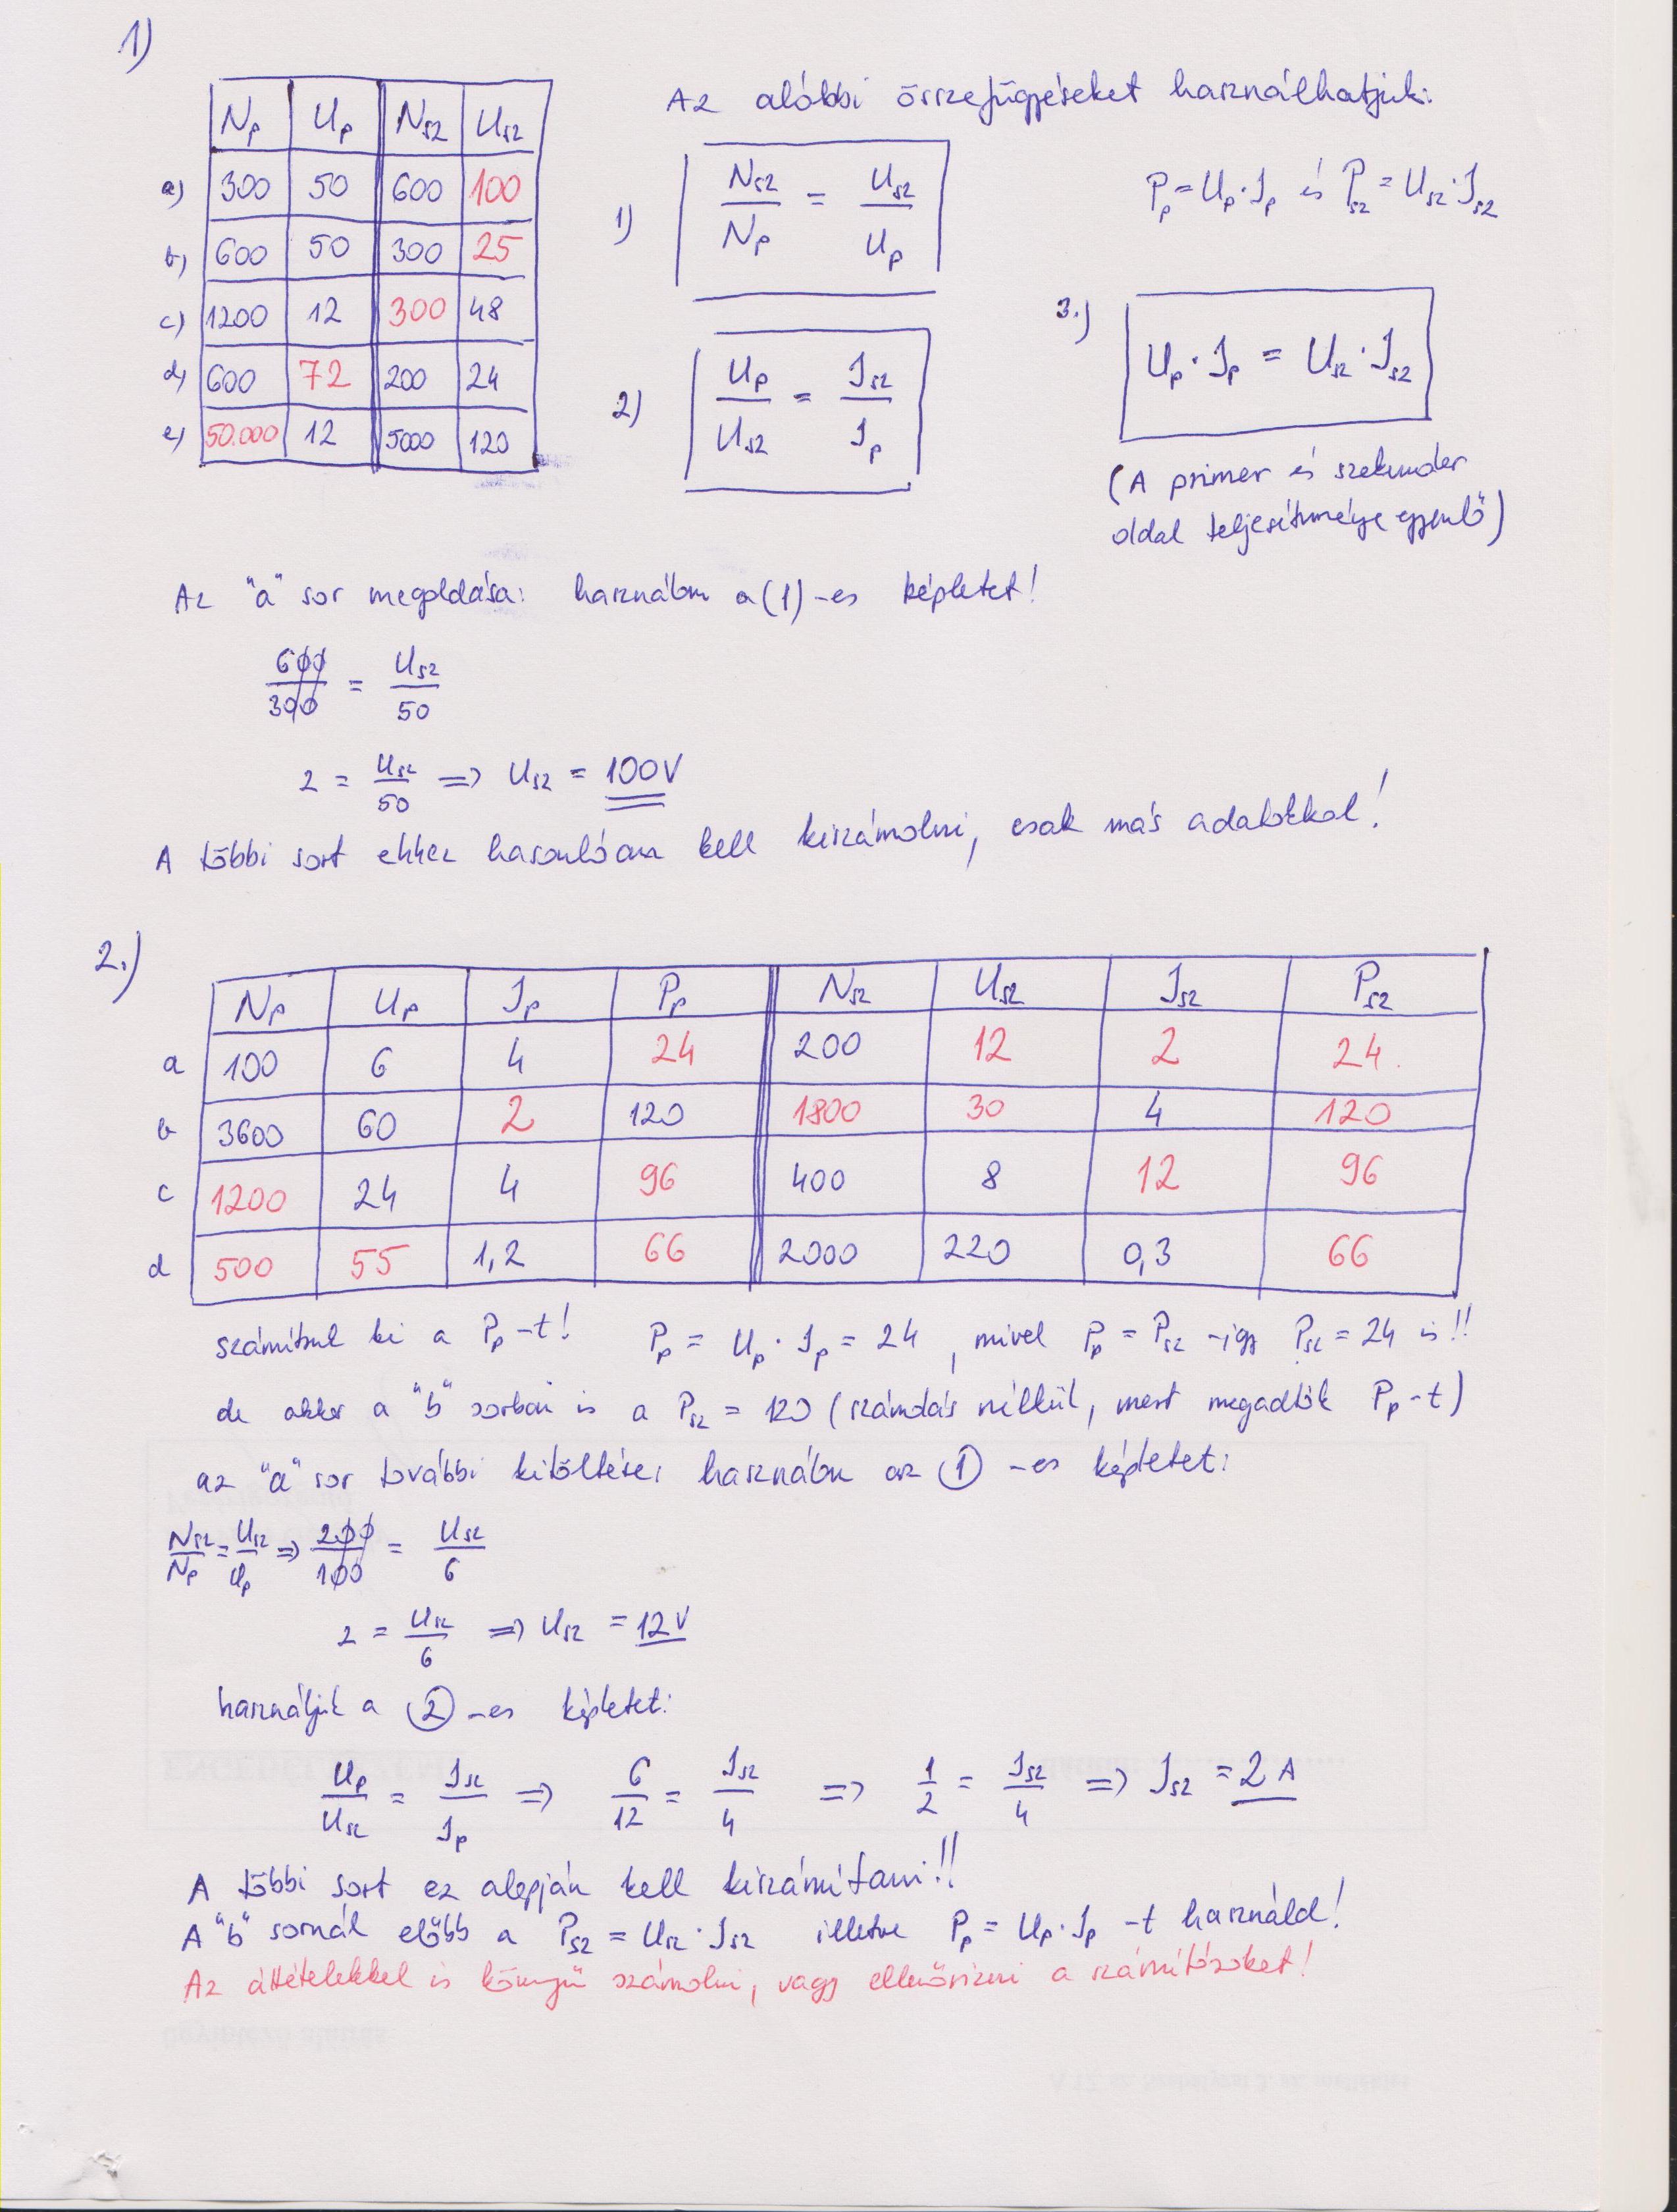 1)
Np Up Nsz Usz
a) 300 50 600 100
b) 600 50 300 25
c) 1200 12 300 48
d) 600 72 200 24
e) 50.000 12 5000 120
Az alábbi összefüggéseket használhatjuk:
1) Nsz/Np = Usz/Up
Pp = Up · Ip és Psz = Usz · Isz
2) Up/Usz = Isz/Ip
3.) Up · Ip = Usz · Isz
(A primer és szekunder
oldal teljesítménye egyenlő)
Az "a" sor megoldása: használom a (1)-es képletet!
600/300 = Usz/50
2 = Usz/50 => Usz = 100V
A többi sort ehhez hasonlóan kell kiszámolni, csak más adatokkal!
2.)
Np Up Ip Pp Nsz Usz Isz Psz
a 100 6 4 24 200 12 2 24
b 3600 60 2 120 1800 30 4 120
c 1200 24 4 96 400 8 12 96
d 500 55 1,2 66 2000 220 0,3 66
számítsuk ki a Pp-t! Pp = Up · Ip = 24, mivel Pp = Psz -így Psz = 24 is!!
de akkor a "b" sorban is a Psz = 120 (számolás nélkül, mert megadták Pp-t)
az "a" sor további kitöltése: használom az ①-es képletet:
Nsz/Np = Usz/Up => 200/100 = Usz/6
2 = Usz/6 => Usz = 12V
használjuk a ②-es képletet:
Up/Usz = Isz/Ip => 6/12 = Isz/4 => 1/2 = Isz/4 => Isz = 2A
A többi sort ez alapján kell kiszámítani!!
A "b" sornál előbb a Psz = Usz · Isz illetve Pp = Up · Ip -t használd!
Az áttételekkel is könnyű számolni, vagy ellenőrizni a számításokat!